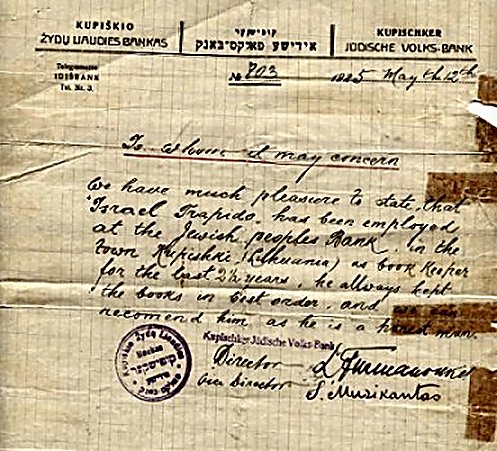 KUPIŠKIO
ŽYDŲ LIAUDIES BANKAS
קופישקער
אידישע פאלקס-באנק
KUPISCHKER
JÜDISCHE VOLKS-BANK
Telegramos:
IDIŠBANK
Tel. Nr. 3.
№ 703
1925 May th 12th
To whom it may concern
We have much pleasure to state, that
Israel Trapido has been employed
at the Jewish peoples Bank, in the
town Kupishki (Lithuania) as book keeper
for the last 2½ years, he allways kept
the books in best order, and
recomend him, as he is a honest man.
Kupischker Jüdische Volks-Bank
Director
Director S. Musikantas
Kupiškio Žydų Liaudies
Bankas
קופישקער
אידישע
פאלקס באנק